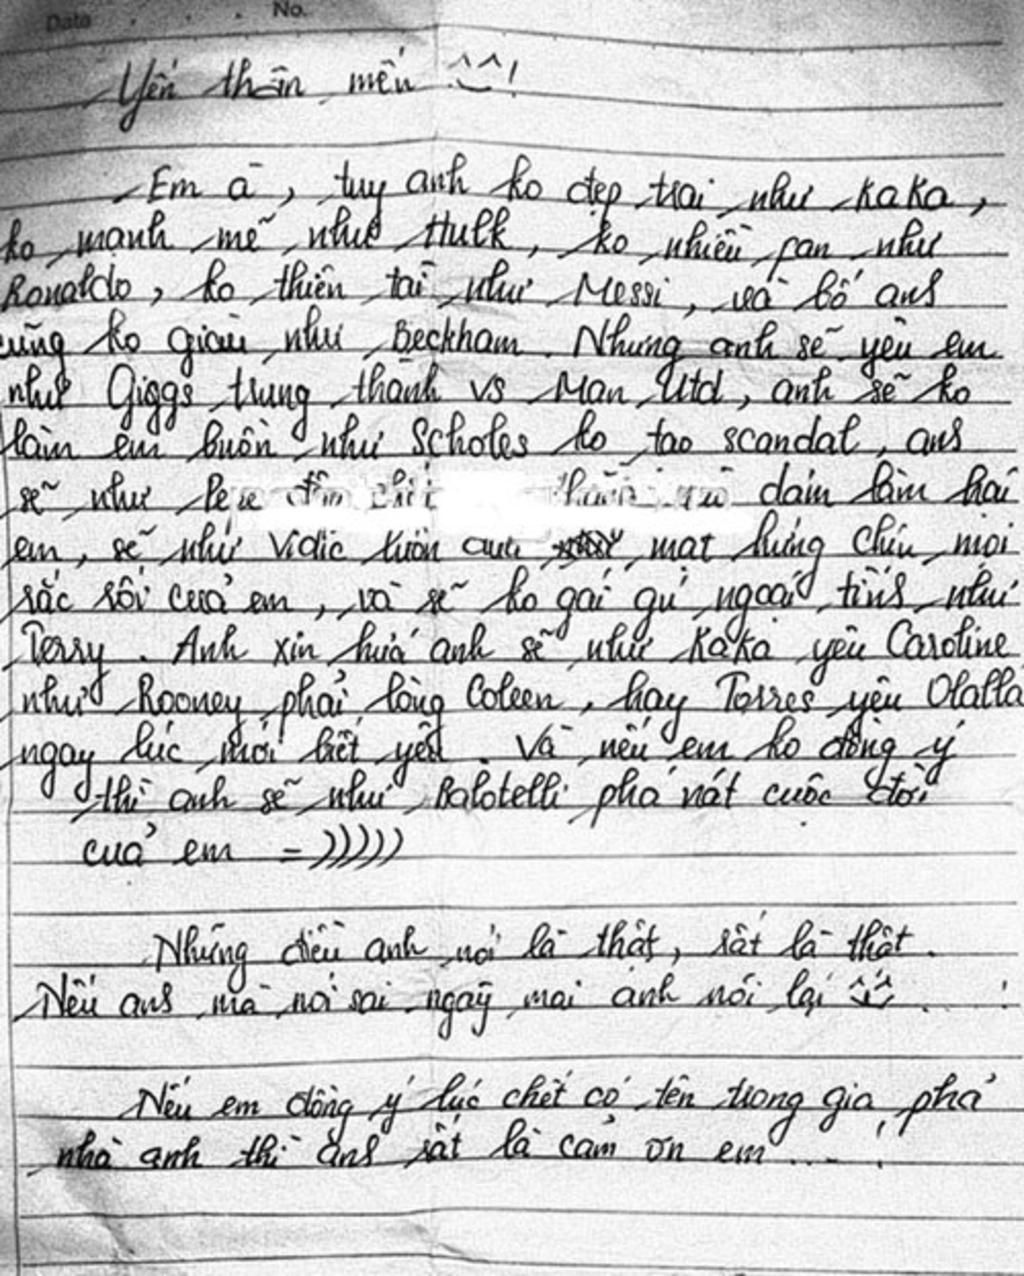 Date . . . No.
Yến thân mến ^^!
Em à, tuy anh ko đẹp trai như KaKa,
ko mạnh mẽ như Hulk, ko nhiều fan như
Ronaldo, ko thiên tài như Messi, và bố ans
cũng ko giàu như Beckham. Nhưng anh sẽ yêu em
như Giggs trung thành vs Man Utd, anh sẽ ko
làm em buồn như Scholes ko tạo scandal, ans
sẽ như Pepe dám làm hại
em, sẽ như Vidic luôn mạt hứng chịu mọi
rắc rối của em, và sẽ ko gái gú ngoại tình như
Terry. Anh xin hứa anh sẽ như KaKa yêu Caroline
như Rooney phải lòng Coleen, hay Torres yêu Olalla
ngay lúc mới biết yêu. Và nếu em ko đồng ý
thì anh sẽ như Balotelli phá nát cuộc đời
của em =)))))
Những điều anh nói là thật, rất là thật.
Nếu ans mà nói sai ngaỳ mai anh nói lại ^^ . . . !
Nếu em đồng ý lúc chết có tên trong gia phả
nhà anh thì ans rất là cảm ơn em ... !